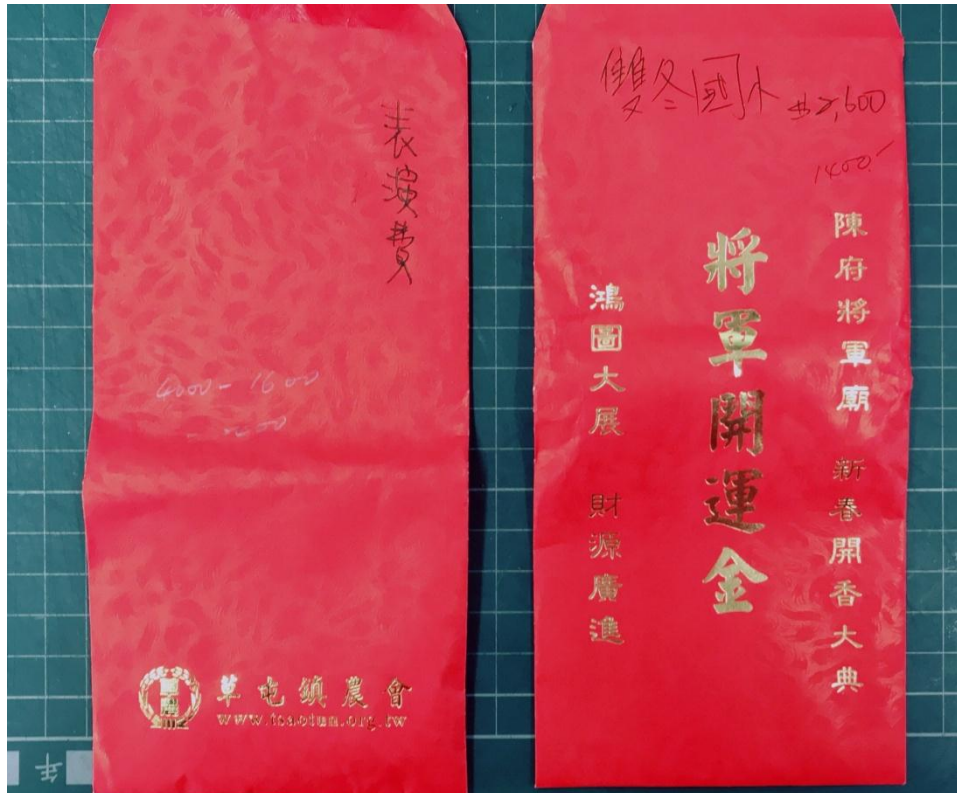 表演費
4000-1600
草屯鎮農會
www.tsaotun.org.tw
雙冬國小 $2,600
1400.-
陳府將軍廟 新春開香大典
將軍開運金
鴻圖大展 財源廣進
年